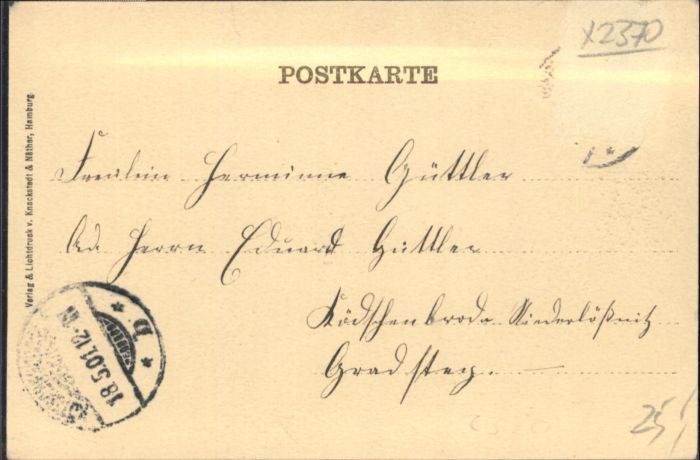 X2370
POSTKARTE
Verlag & Lichtdruck v. Knackstedt & Näther, Hamburg.
Fräulein Hermine Güttler
Ad. Herrn Eduard Güttler
Ködschenbroda Niederlößnitz
Gradsteg.
18.5.01.12-1N
D
25